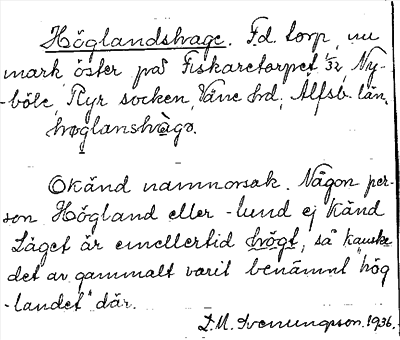 Höglandshage. F.d. torp, nu
mark öster på Fiskaretorpet 1/32, Ny-
-böle, Ryr socken, Väne hd, Älfsb. län.
høglanshàgə.
Okänd namnorsak. Någon per-
son Högland eller -lund ej känd
Läget är emellertid högt, så kanske
det av gammalt varit benämnt "hög
-landet" där.